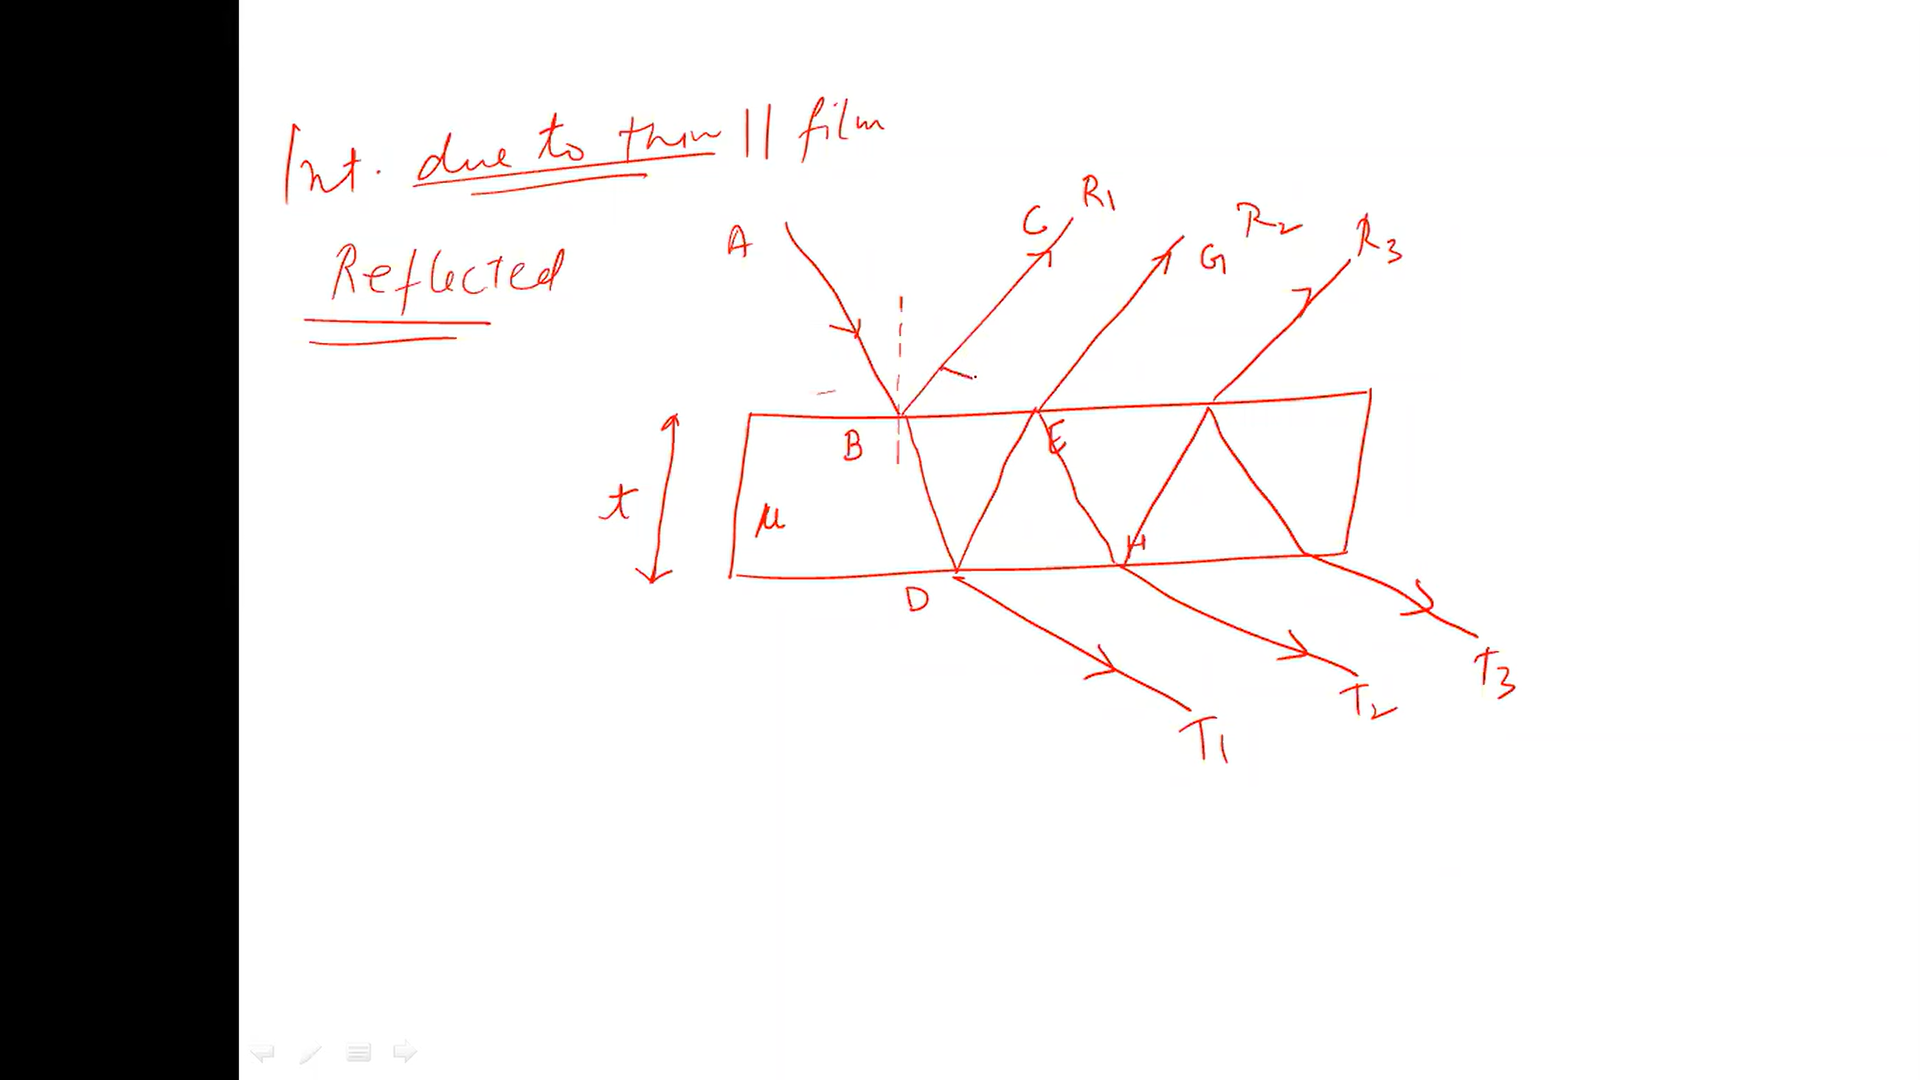 Int. due to thin || film
Reflected
A
C R1
G R2
R3
B
E
t
μ
H
D
T1
T2
T3